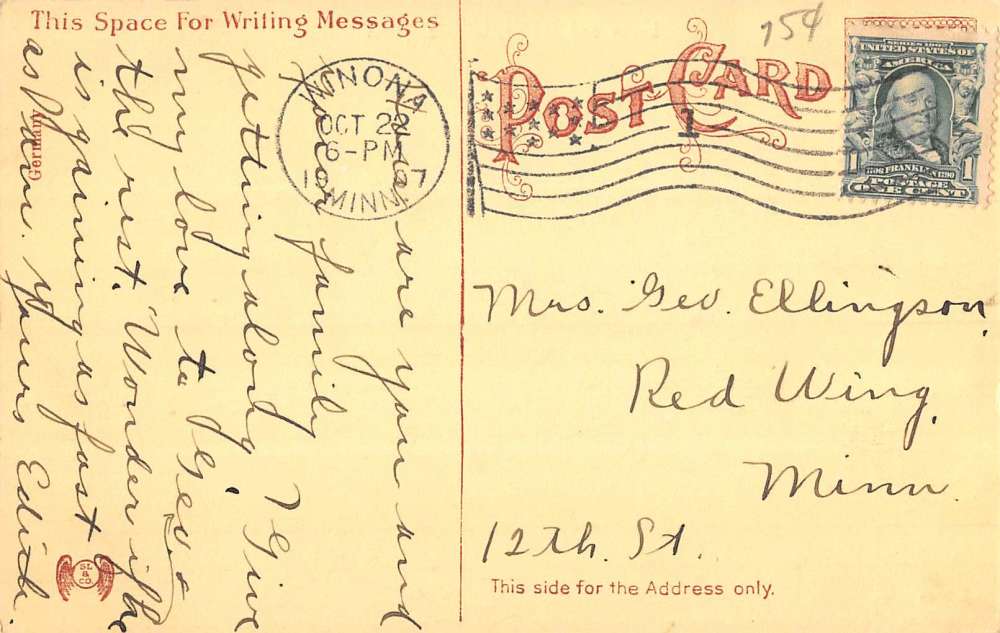 This Space For Writing Messages
How are you and
family
getting along? Give
my love to Geo &
the rest. Wonder if he
is gaining as fast
as I am. yours Edith
Germany
SL & CO.
WINONA
OCT 22
6-PM
MINN.
POST CARD
1
15¢
SERIES 1902
UNITED STATES OF
AMERICA
1706 FRANKLIN 1790
1 POSTAGE 1
ONE CENT
Mrs. Geo. Ellingson,
Red Wing,
Minn.
12th. St.
This side for the Address only.